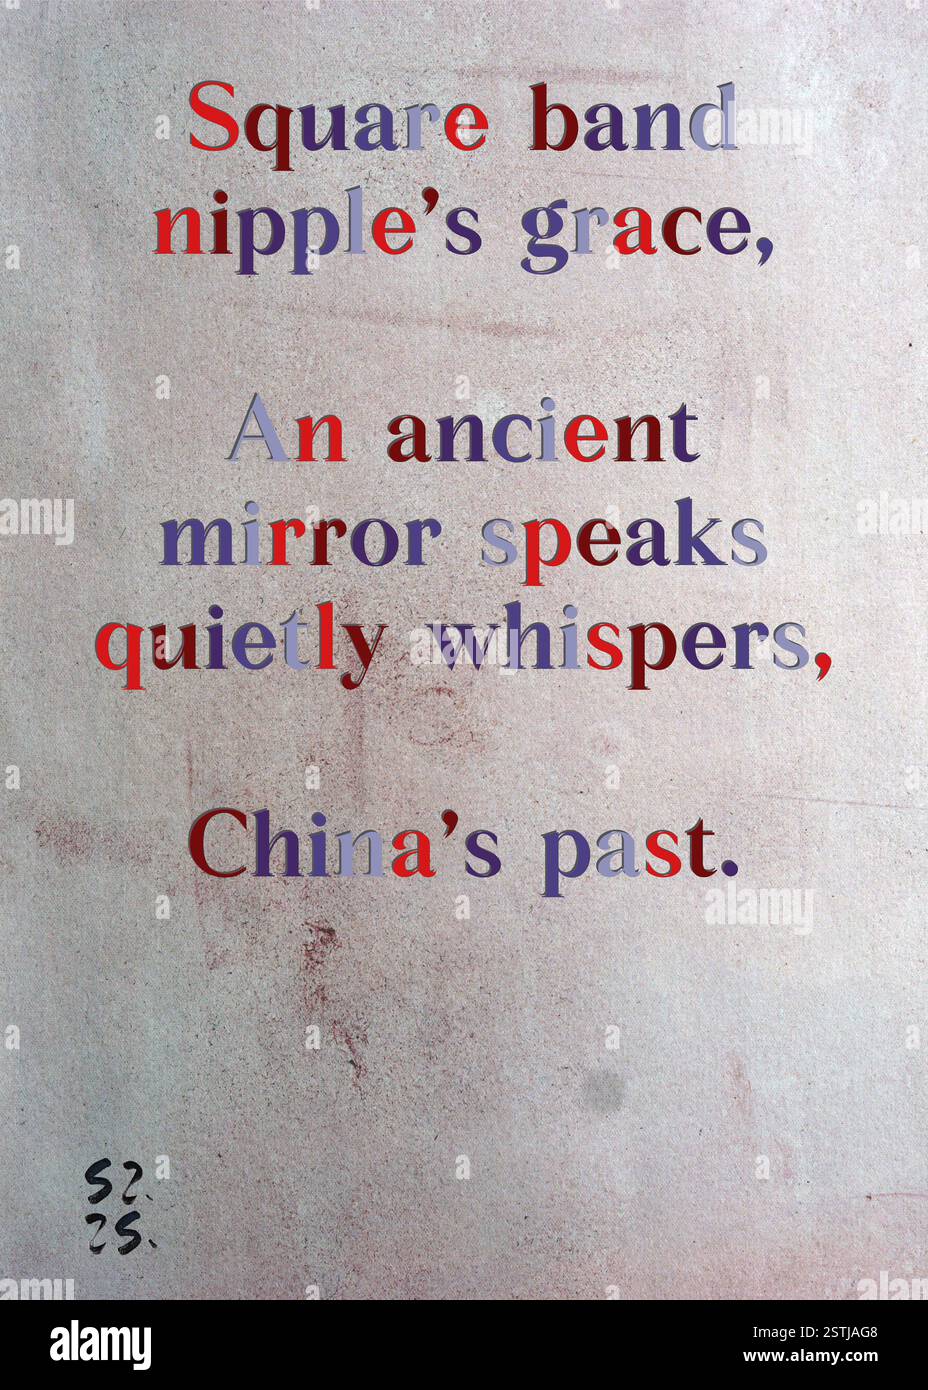 Square band
nipple’s grace,
An ancient
mirror speaks
quietly whispers,
China’s past.
SZ.
ZS.
alamy
alamy
Image ID: 2STJAG8
www.alamy.com